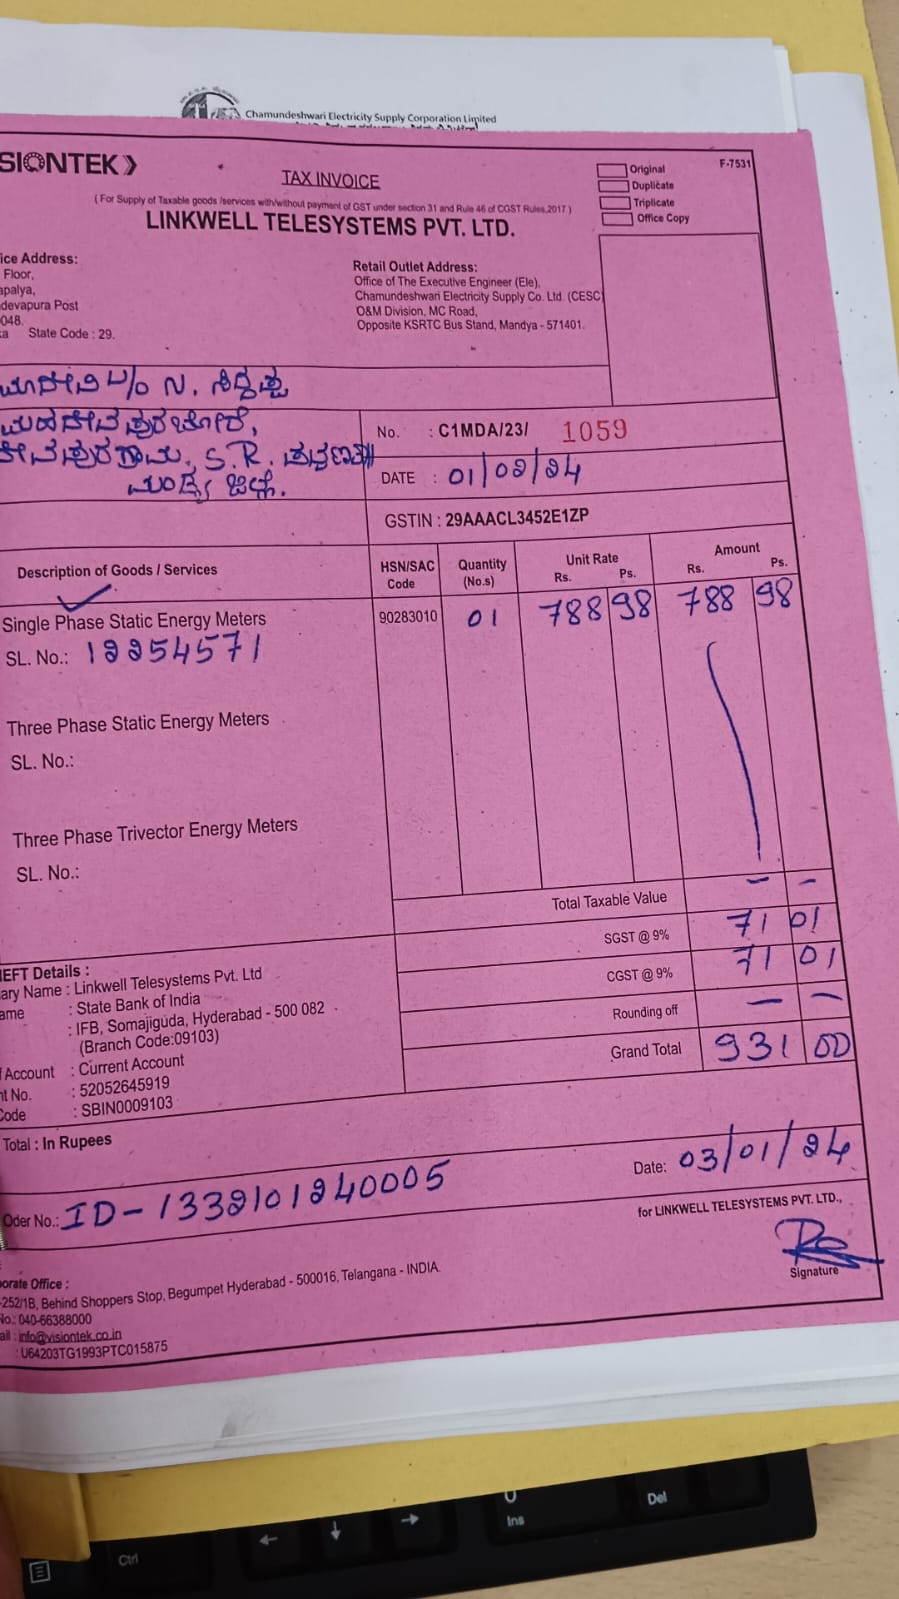 Chamundeshwari Electricity Supply Corporation Limited
SIONTEK
TAX INVOICE
( For Supply of Taxable goods /services with/without payment of GST under section 31 and Rule 46 of CGST Rules,2017 )
LINKWELL TELESYSTEMS PVT. LTD.
F-7531
Original
Duplicate
Triplicate
Office Copy
ice Address:
Floor,
apalya,
devapura Post
048.
ka State Code : 29.
Retail Outlet Address:
Office of The Executive Engineer (Ele),
Chamundeshwari Electricity Supply Co. Ltd. (CESC
O&M Division, MC Road,
Opposite KSRTC Bus Stand, Mandya - 571401.
ಮಾದೇವಿ W/o N. ಸಿದ್ದಪ್ಪ
S.R.
ಮಂಡ್ಯ ಜಿಲ್ಲೆ.
No. : C1MDA/23/ 1059
DATE : 01/02/24
GSTIN : 29AAACL3452E1ZP
Description of Goods / Services HSN/SAC Code Quantity (No.s) Unit Rate Rs. Ps. Amount Rs. Ps.
Single Phase Static Energy Meters 90283010 01 788 98 788 98
SL. No.: 12254571
Three Phase Static Energy Meters
SL. No.:
Three Phase Trivector Energy Meters
SL. No.:
Total Taxable Value - -
SGST @ 9% 71 01
CGST @ 9% 71 01
Rounding off - -
Grand Total 931 00
EFT Details :
ary Name : Linkwell Telesystems Pvt. Ltd
ame : State Bank of India
: IFB, Somajiguda, Hyderabad - 500 082
(Branch Code:09103)
Account : Current Account
nt No. : 52052645919
Code : SBIN0009103
Total : In Rupees
Oder No.: ID-1332101240005
Date: 03/01/24
for LINKWELL TELESYSTEMS PVT. LTD.,
Signature
orate Office :
-252/1B, Behind Shoppers Stop, Begumpet Hyderabad - 500016, Telangana - INDIA.
No.: 040-66388000
ail : info@visiontek.co.in
: U64203TG1993PTC015875
Ctrl
Ins
Del